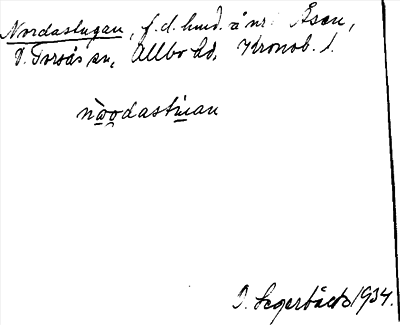 Nordastugan, f.d. hmd. å nr: Åsen,
V. Torsås sn, Allbo hd, Kronob. l.
nåodastu̇an
D. Segerbäck 1934.